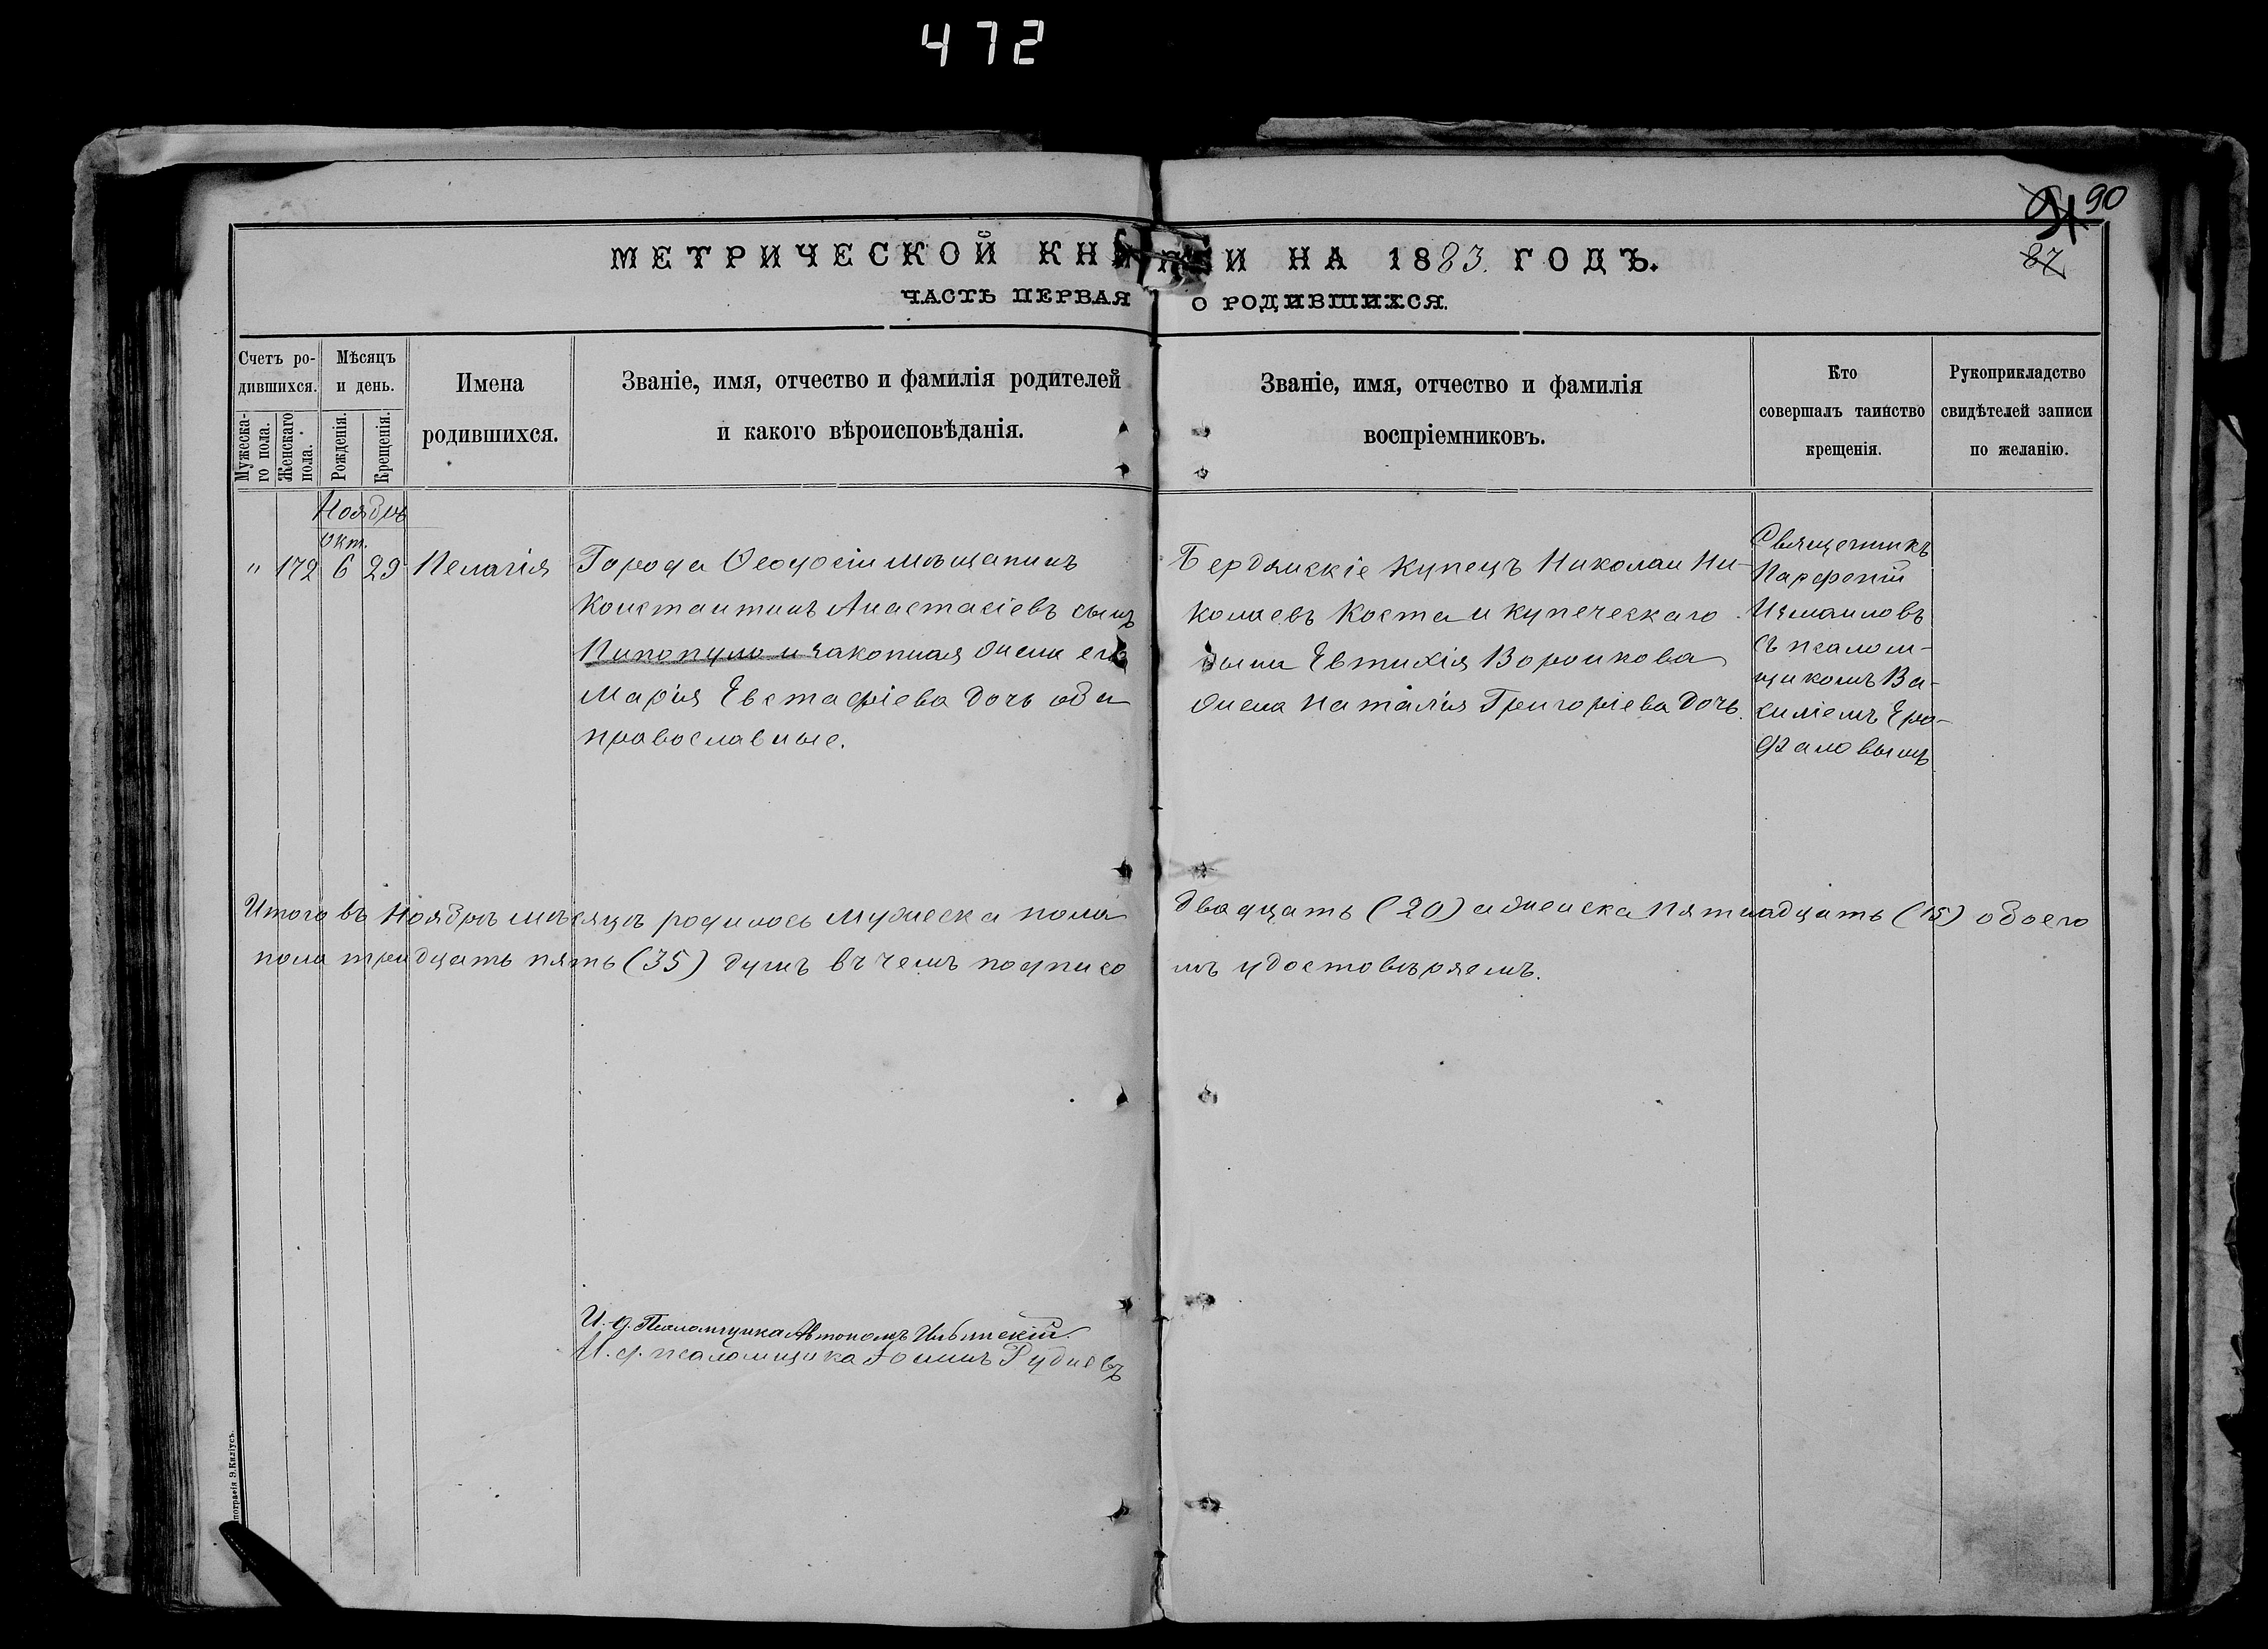 472
90
87
МЕТРИЧЕСКОЙ КНИГИ НА 1883. ГОДЪ.
ЧАСТЬ ПЕРВАЯ О РОДИВШИХСЯ.
Счетъ ро-
дившихся.
Мужеска-
го пола.
Женскаго
пола.
Мѣсяцъ
и день.
Рожденія.
Крещенія.
Имена
родившихся.
Званіе, имя, отчество и фамилія родителей
и какого вѣроисповѣданія.
Званіе, имя, отчество и фамилія
воспріемниковъ.
Кто
совершалъ таинство
крещенія.
Рукоприкладство
свидѣтелей записи
по желанію.
Ноябрь
Окт.
" 172 6 29 Пелагія
Города Ѳеодосіи мѣщанинъ
Константинъ Анастасіевъ сынъ
Пипопуло и законная жена его
Марія Евстафіева дочь оба
православные.
Бердянскіе купецъ Николай Ни-
колаевъ Коста и купеческаго
сына Евтихія Воронкова
жена Наталія Григоріева дочь.
Священникъ
Парфеній
Измаиловъ
съ псалом-
щикомъ Ва-
силіемъ Еро-
фаловымъ
Итого въ Ноябрѣ мѣсяцѣ родилось мужеска пола двадцать (20) а женска пятнадцать (15) обоего
пола тридцать пять (35) душъ въ чемъ подписомъ удостовѣряемъ.
И. д. Псаломщика Автономъ Ильинскій.
И. д. псаломщика Іоаннъ Рудневъ
пографія Э. Киліусъ.